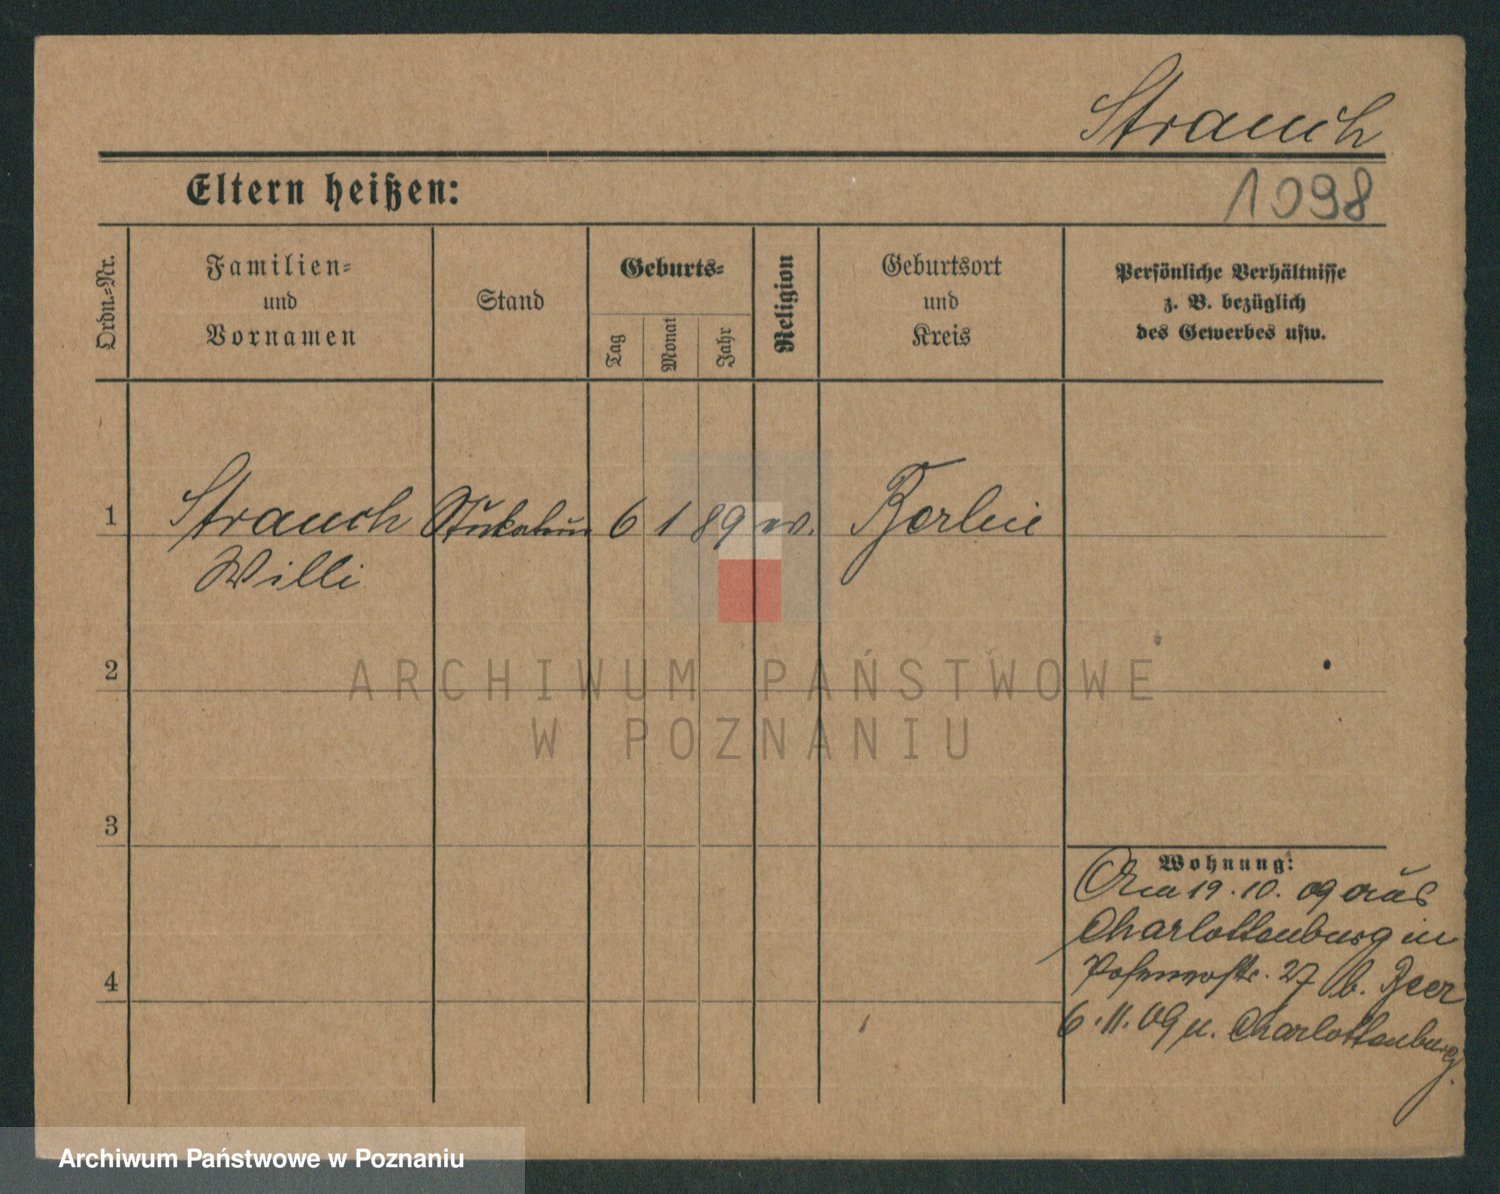 Strauch
Eltern heißen:
1098
Ordn.-Nr.
Familien-
und
Vornamen
Stand
Geburts-
Tag
Monat
Jahr
Religion
Geburtsort
und
Kreis
Persönliche Verhältnisse
z. B. bezüglich
des Gewerbes usw.
1
Strauch
Willi
6
1
89
ev.
Berlin
2
3
4
Wohnung:
Am 19.10.09 aus
Charlottenburg in
27 b. Beer
6.11.09 n. Charlottenburg.
ARCHIWUM PAŃSTWOWE
W POZNANIU
Archiwum Państwowe w Poznaniu